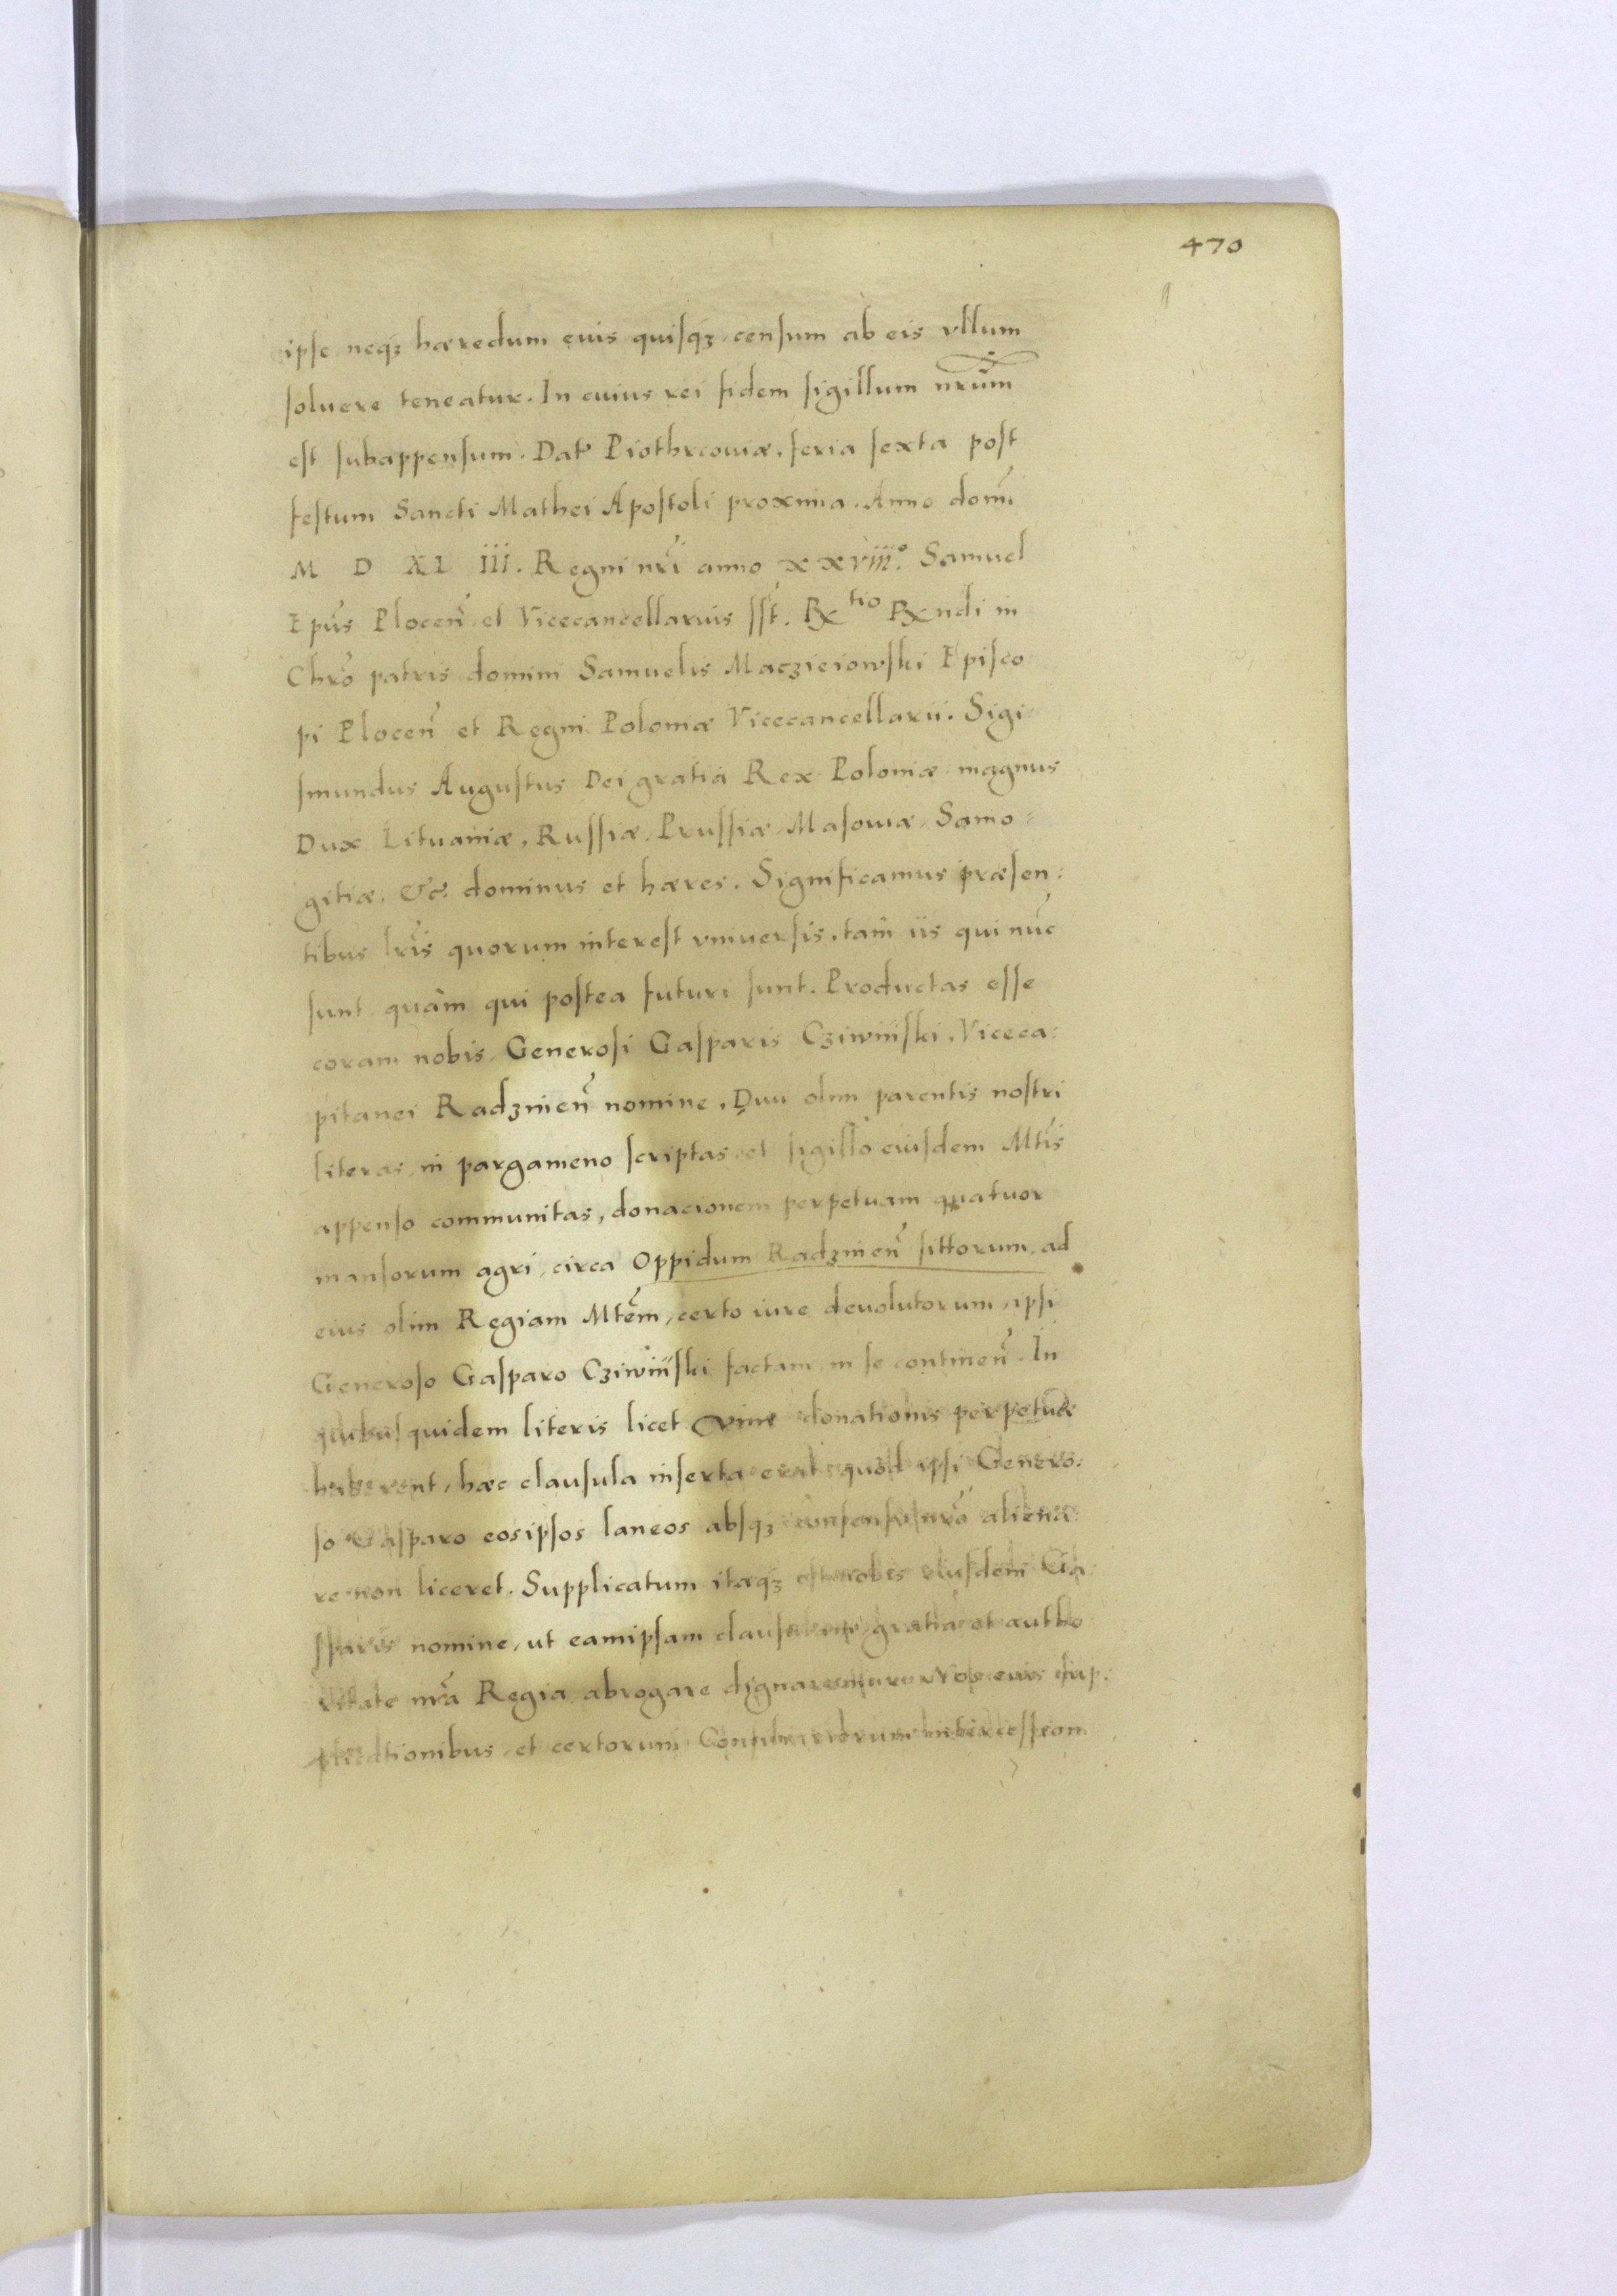 470
ipse neqꝫ hæredum eius quisqꝫ censum ab eis vllum
soluere teneatur. In cuius rei fidem sigillum nrūm
est subappensum. Dat Piothrcouiæ, feria sexta post
festum Sancti Mathei Apostoli proxima. Anno domi
M D XL III. Regni nri anno xxviii°. Samuel
Epus Plocen et Vicecancellarius sst. Rx tio Rxndi in
Chro patris domini Samuelis Maczieiowski Episco
pi Plocen et Regni Poloniæ Vicecancellarii. Sigi
smundus Augustus Dei gratia Rex Poloniæ magnus
Dux Lituaniæ, Russiæ, Prussiæ, Masouiæ, Samo=
gitiæ, &c. dominus et hæres. Significamus præsen:
tibus lris quorum interest vniuersis, tam iis qui nūc
sunt quàm qui postea futuri sunt. Productas esse
coram nobis, Generosi Gasparis Cziwiński, Viceca:
pitanei Radzmien nomine, Diui olim parentis nostri
literas, in pargameno scriptas et sigillo eiusdem Mtis
appenso communitas, donacionem perpetuam quatuor
mansorum agri, circa Oppidum Radzmien sittorum, ad
eius olim Regiam Mtem, certo iure deuolutorum, ipsi
Generoso Gasparo Cziwiński factam in se continen. In
quibus quidem literis licet vim donationis perpetuæ
haberent, hæc clausula inserta erat quòd ipsi Genero:
so Gasparo eosipsos laneos absqꝫ consensu nro aliena:
re non liceret. Supplicatum itaqꝫ est nobis eiusdem Ga
sparis nomine, ut eamipsam clausulam gratia et autho
ritate nra Regia abrogare dignaremur. Nos eius sup:
plicationibus, et certorum Consiliariorum intercession